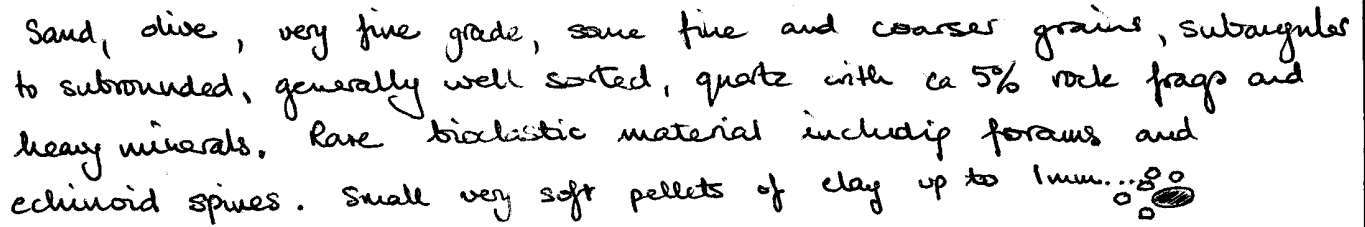 Sand, olive, very fine grade, some fine and coarser grains, subangular
to subrounded, generally well sorted, quartz with ca 5% rock frags and
heavy minerals. Rare bioclastic material including forams and
echinoid spines. Small very soft pellets of clay up to 1mm...